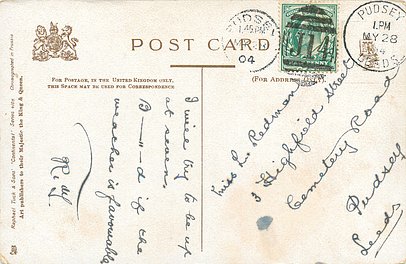 POST CARD
FOR POSTAGE, IN THE UNITED KINGDOM ONLY,
THIS SPACE MAY BE USED FOR CORRESPONDENCE
(FOR ADDRESS
PUDSEY
1.45PM
04
PUDSEY
1PM
MY 28
4
LEEDS
114
PENNY
I will try to be up
at seven.
B—d if the
weather is favourable
Miss L. Redman
3 Highfield Street
Cemetery Road
Pudsey
Leeds
Raphael Tuck & Sons' "Continental" Series
Chromographed in Prussia
Art publishers to their Majesties the King & Queen.